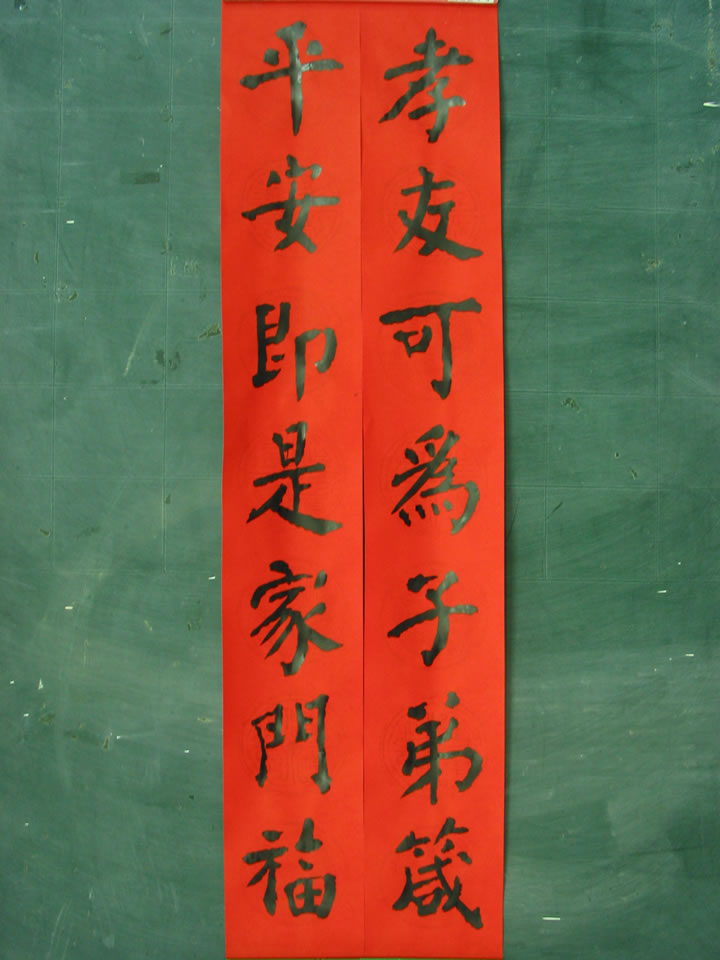 孝友可爲子弟箴
平安即是家門福